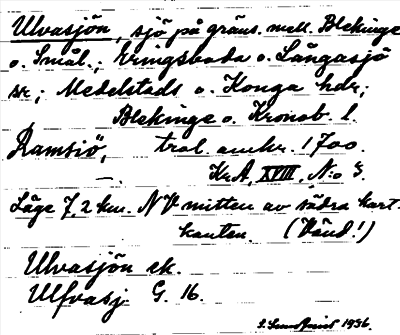 Ulvasjön, sjö på gräns. mell. Blekinge
o. Smål.; Eringsboda o. Långasjö
sr; Medelstads o. Konga hdr;
Blekinge o. Kronob. l.
Ramsiö, trol. omkr. 1700.
Kr.A, XVIII, N:o 3.
Läge 7,2 km. NV mitten av södra kart-
kanten. (Vänd!)
Ulvasjön ek.
Ulfvasj. G. 16.
1936.